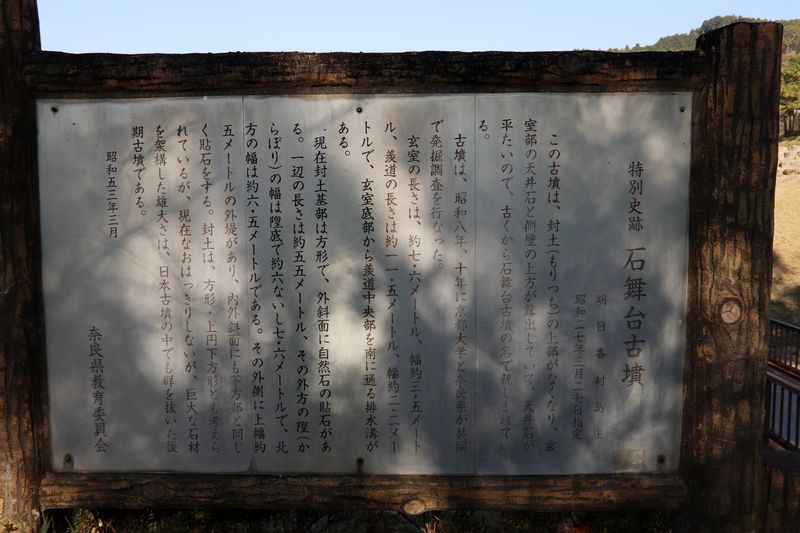 特別史跡 石舞台古墳
明日香村島庄
昭和二七年三月二七日指定
この古墳は、封土(もりつち)の上部がなくなり、玄
室部の天井石と側壁の上方が露出していて、天井石が
平たいので、古くから石舞台古墳の名で親しまれてい
る。
古墳は、昭和八年、十年に京都大学と奈良県が共同
で発掘調査を行なった。
玄室の長さは、約七・六メートル、幅約三・五メート
ル、羨道の長さは約一一・五メートル、幅約二・二メー
トルで、玄室底部から羨道中央部を南に通る排水溝が
ある。
現在封土基部は方形で、外斜面に自然石の貼石があ
る。一辺の長さは約五五メートル、その外方の隍(か
らぼり)の幅は隍底で約六ないし七・六メートルで、北
方の幅は約六・五メートルである。その外側に上幅約
五メートルの外堤があり、内外斜面にも下方部と同じ
く貼石をする。封土は、方形・上円下方形とも考えら
れているが、現在なおはっきりしないが、巨大な石材
を架構した雄大さは、日本古墳の中でも群を抜いた後
期古墳である。
昭和五二年三月
奈良県教育委員会